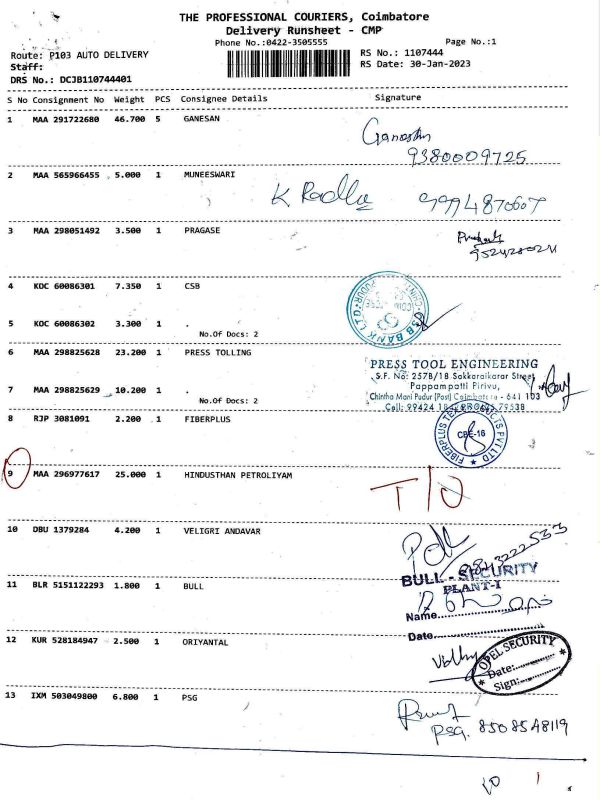 THE PROFESSIONAL COURIERS, Coimbatore
Delivery Runsheet - CMP
Phone No.:0422-3505555
Page No.:1
Route: P103 AUTO DELIVERY
RS No.: 1107444
Staff:
RS Date: 30-Jan-2023
DRS No.: DCJB110744401
S No Consignment No Weight PCS Consignee Details Signature
1 MAA 291722680 46.700 5 GANESAN
9380009725
2 MAA 565966455 5.000 1 MUNEESWARI
K Radha
3 MAA 298051492 3.500 1 PRAGASE
4 KOC 60086301 7.350 1 CSB
CSB BANK LTD
5 KOC 60086302 3.300 1 .
No.Of Docs: 2
6 MAA 298825628 23.200 1 PRESS TOLLING
PRESS TOOL ENGINEERING
S.F. No: 2578/18 Sakkaraikarar Street
Pappampatti Pirivu,
7 MAA 298825629 10.200 1 .
Chintha Mani Pudur (Post) Coimbatore - 641 103
No.Of Docs: 2
Cell: 99424 79538
8 RJP 3081091 2.200 1 FIBERPLUS
FIBERPLUS PVT LTD
CBE-16
9 MAA 296977617 25.000 1 HINDUSTHAN PETROLIYAM
T/O
10 DBU 1379284 4.200 1 VELIGRI ANDAVAR
BULL - SECURITY
PLANT-I
11 BLR 5151122293 1.800 1 BULL
Name
Date
12 KUR 528184947 2.500 1 ORIYANTAL
OPEL SECURITY
Date:
Sign:
13 IXM 503049800 6.800 1 PSG
PSG. 8508548119